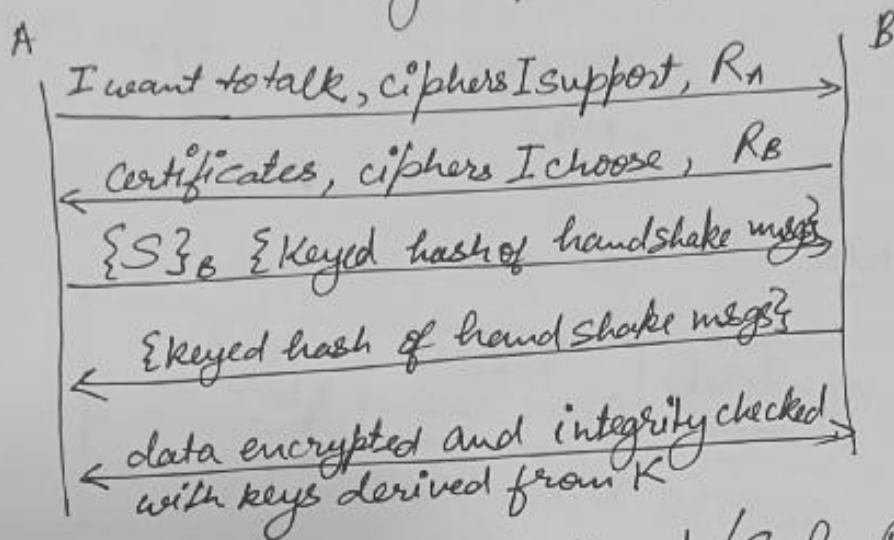 A B
I want to talk, ciphers I support, R_A
Certificates, ciphers I choose, R_B
{S}_B {Keyed hash of handshake msgs}
{keyed hash of handshake msgs}
data encrypted and integrity checked
with keys derived from K